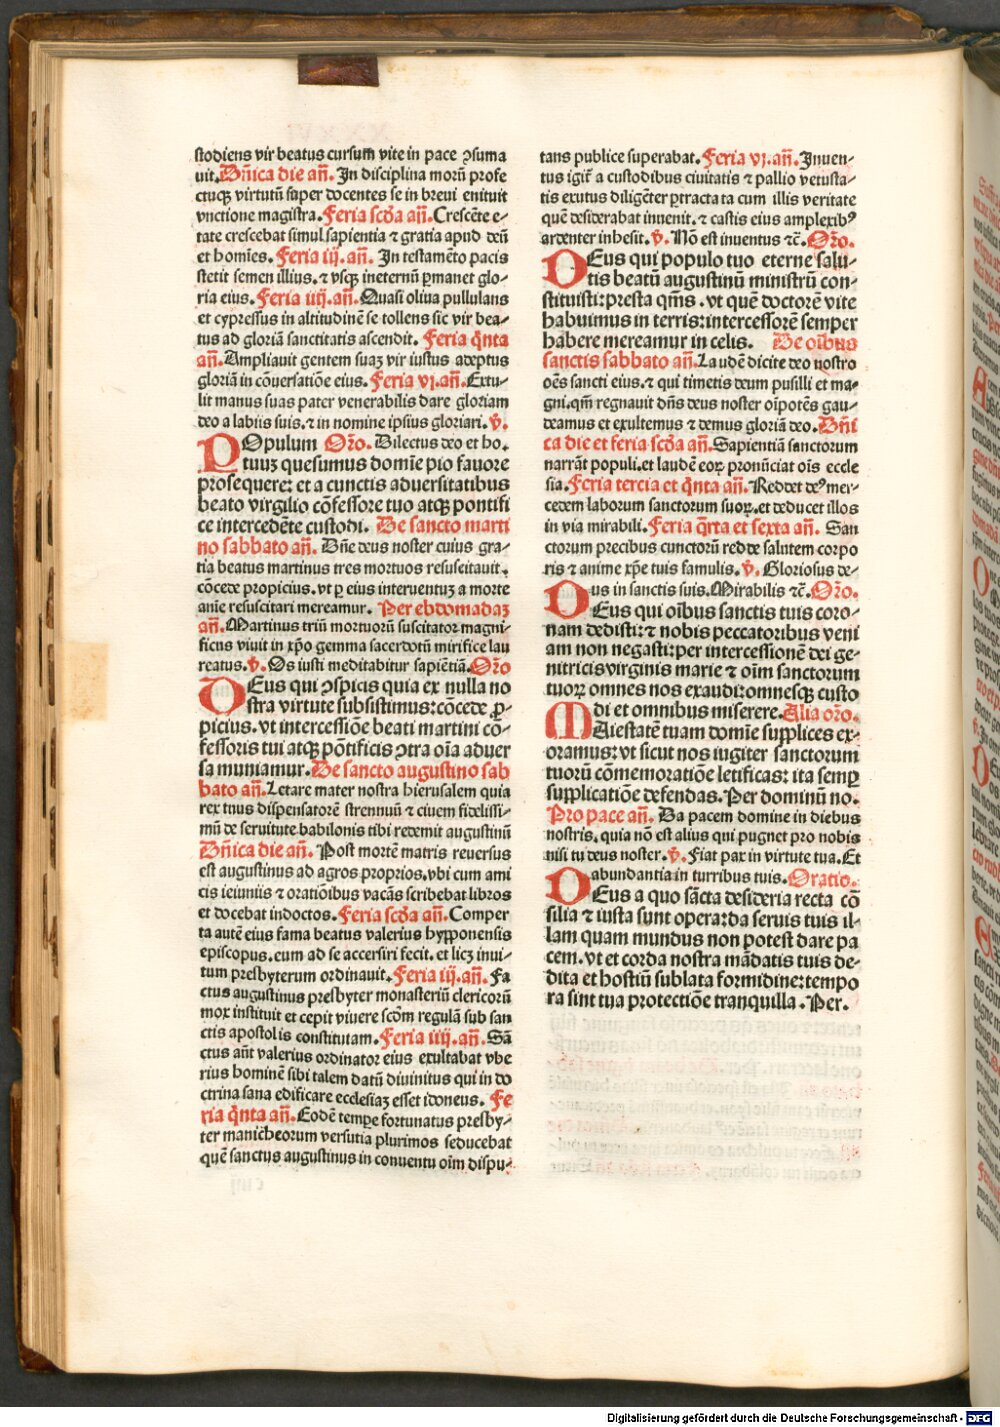 stodiens vir beatus cursum vite in pace ꝯsuma
uit. Dn̄ica die an̄. In disciplina morū profe
ctuqꝫ virtutū super docentes se in brevi enituit
vnctione magistra. Feria scd̄a an̄. Crescēte e-
tate crescebat simul sapientia ⁊ gratia apud deū
et homīes. Feria iij. an̄. In testamēto pacis
stetit semen illius. ⁊ vsqꝫ ineternū ꝑmanet glo-
ria eius. Feria iiij. an̄. Quasi oliua pullulans
et cypressus in altitudinē se tollens sic vir bea-
tus ad gloriā sanctitatis ascendit. Feria q̄nta
an̄. Ampliauit gentem suaꝫ vir iustus adeptus
gloriā in cōuersatiōe eius. Feria vj. an̄. Extu-
lit manus suas pater venerabilis dare gloriam
deo a labiis suis. ⁊ in nomine ipsius gloriari. v̄.
POpulum Oro. Dilectus deo et ho.
tuuꝫ quesumus domīe pio fauore
prosequere: et a cunctis aduersitatibus
beato virgilio cōfessore tuo atqꝫ pontifi
ce intercedēte custodi. De sancto marti
no sabbato an̄. Dn̄e deus noster cuius gra-
tia beatus martinus tres mortuos resuscitauit.
cōcede propicius. vt ꝑ eius interuentuꝫ a morte
anīe resuscitari mereamur. Per ebdomadaꝫ
an̄. Martinus triū mortuorū suscitator magni-
ficus viuit in xp̄o gemma sacerdotū mirifice lau
reatus. v̄. Os iusti meditabitur sapiētiā. Oro
DEus qui ꝯspicis quia ex nulla no
stra virtute subsistimus: cōcede ꝓ-
picius. vt intercessiōe beati martini cō-
fessoris tui atqꝫ pōtificis ꝯtra oīa aduer
sa muniamur. De sancto augustino sab
bato an̄. Letare mater nostra hierusalem quia
rex tuus dispensatorē strennuū ⁊ ciuem fidelissi-
mū de seruitute babilonis tibi redemit augustinū
Dn̄ica die an̄. Post mortē matris reuersus
est augustinus ad agros proprios. vbi cum ami
cis ieiuniis ⁊ oratiōibus vacās scribebat libros
et docebat indoctos. Feria scd̄a an̄. Comper
ta autē eius fama beatus valerius hypponensis
episcopus. eum ad se accersiri fecit. et licꝫ inui-
tum presbyterum ordinauit. Feria iij. an̄. Fa
ctus augustinus presbyter monasteriū clericorū
mox instituit et cepit viuere scd̄m regulā sub san
ctis apostolis constitutam. Feria iiij. an̄. Sā
ctus aūt valerius ordinator eius exultabat vbe
rius hominē sibi talem datū diuinitus qui in do
ctrina sana edificare ecclesiaꝫ esset idoneus. Fe
ria q̄nta an̄. Eodē tempe fortunatus presby-
ter manicheorum versutia plurimos seducebat
quē sanctus augustinus in conuentu oīm dispu-
tans publice superabat. Feria vj. an̄. Inuen-
tus igit̄ a custodibus ciuitatis ⁊ pallio vetusta-
tis exutus diligēter ꝑtracta ta cum illis veritate
quē desiderabat inuenit. ⁊ castis eius amplexibꝰ
ardenter inhesit. v̄. Nō est inuentus ⁊c̄. Oro.
DEus qui populo tuo eterne salu-
tis beatū augustinū ministrū con-
stituisti: presta qm̄s. vt quē doctorē vite
habuimus in terris: intercessorē semper
habere mereamur in celis. De oībus
sanctis sabbato an̄. Laudē dicite deo nostro
oēs sancti eius. ⁊ qui timetis deum pusilli et ma-
gni. qm̄ regnauit dn̄s deus noster oīpotēs gau-
deamus et exultemus ⁊ demus gloriā deo. Dn̄i
ca die et feria scd̄a an̄. Sapientiā sanctorum
narrāt populi. et laudē eoꝝ pronūciat oīs eccle
sia. Feria tercia et q̄nta an̄. Reddet deꝰ mer-
cedem laborum sanctorum suoꝝ. et deducet illos
in via mirabili. Feria q̄rta et sexta an̄. San
ctorum precibus cunctorū redde salutem corpo
ris ⁊ anime xp̄e tuis famulis. v̄. Gloriosus de-
us in sanctis suis. Mirabilis ⁊c̄. Oro.
DEus qui oībus sanctis tuis coro-
nam dedisti: ⁊ nobis peccatoribus veni
am non negasti: per intercessionē dei ge-
nitricis virginis marie ⁊ oīm sanctorum
tuoꝝ omnes nos exaudi: omnesqꝫ custo
di et omnibus miserere. Alia oro.
MAiestatē tuam domīe supplices ex-
oramus: vt sicut nos iugiter sanctorum
tuorū cōmemoratiōe letificas: ita semꝑ
supplicatiōe defendas. Per dominū no.
Pro pace an̄. Da pacem domine in diebus
nostris. quia nō est alius qui pugnet pro nobis
nisi tu deus noster. v̄. Fiat pax in virtute tua. Et
abundantia in turribus tuis. Oratio.
DEus a quo sācta desideria recta cō
silia ⁊ iusta sunt opera: da seruis tuis il-
lam quam mundus non potest dare pa
cem. vt et corda nostra mādatis tuis de-
dita et hostiū sublata formidine: tempo
ra sint tua protectiōe tranquilla. Per.
Digitalisierung gefördert durch die Deutsche Forschungsgemeinschaft - DFG